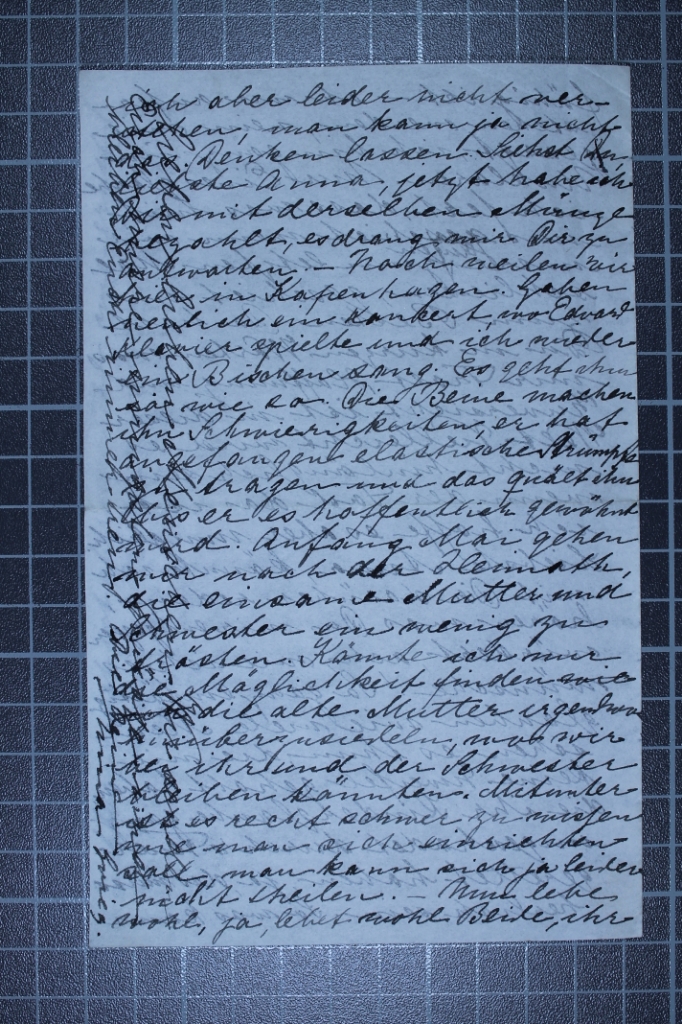 ich aber leider nicht ver-
stehen, man kann ja nicht
das Denken lassen. Siehst Du
liebste Anna, jetzt habe ich
Dir mit derselben Münze
bezahlt, es drang mir Dir zu
antworten. – Noch weilen wir
hier in Kopenhagen. Gaben
neulich ein Konzert, wo Edvard
Klavier spielte und ich wieder
ein Bischen sang. Es geht ihm
so wie so. Die Beine machen
ihm Schwierigkeiten, er hat
angefangen elastische Strümpfe
zu tragen und das quält ihn
bis er es hoffentlich gewöhnt
wird. Anfang Mai gehen
wir nach der Heimath,
die einsame Mutter und
Schwester ein wenig zu
trösten. Könnte ich nur
die Möglichkeit finden wie
die alte Mutter irgendwo
hinüberzusiedeln, wo wir
bei ihr und der Schwester
bleiben könnten. Mitunter
ist es recht schwer zu wissen
wie man sich einrichten
soll, man kann sich ja leider
nicht theilen. – Nun lebe
wohl, ja, lebet wohl Beide, ihr